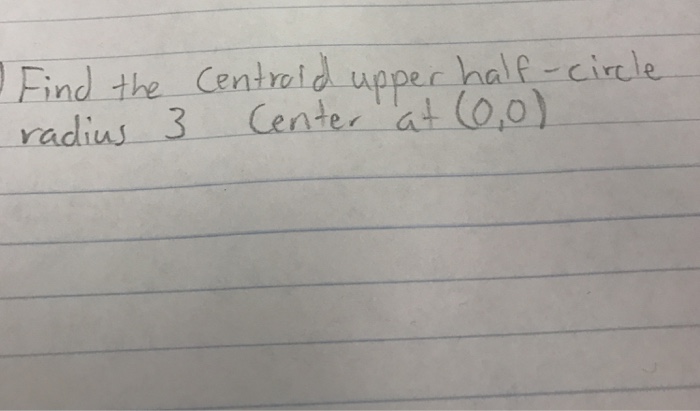 ) Find the Centroid upper half-circle
radius 3 Center at (0,0)